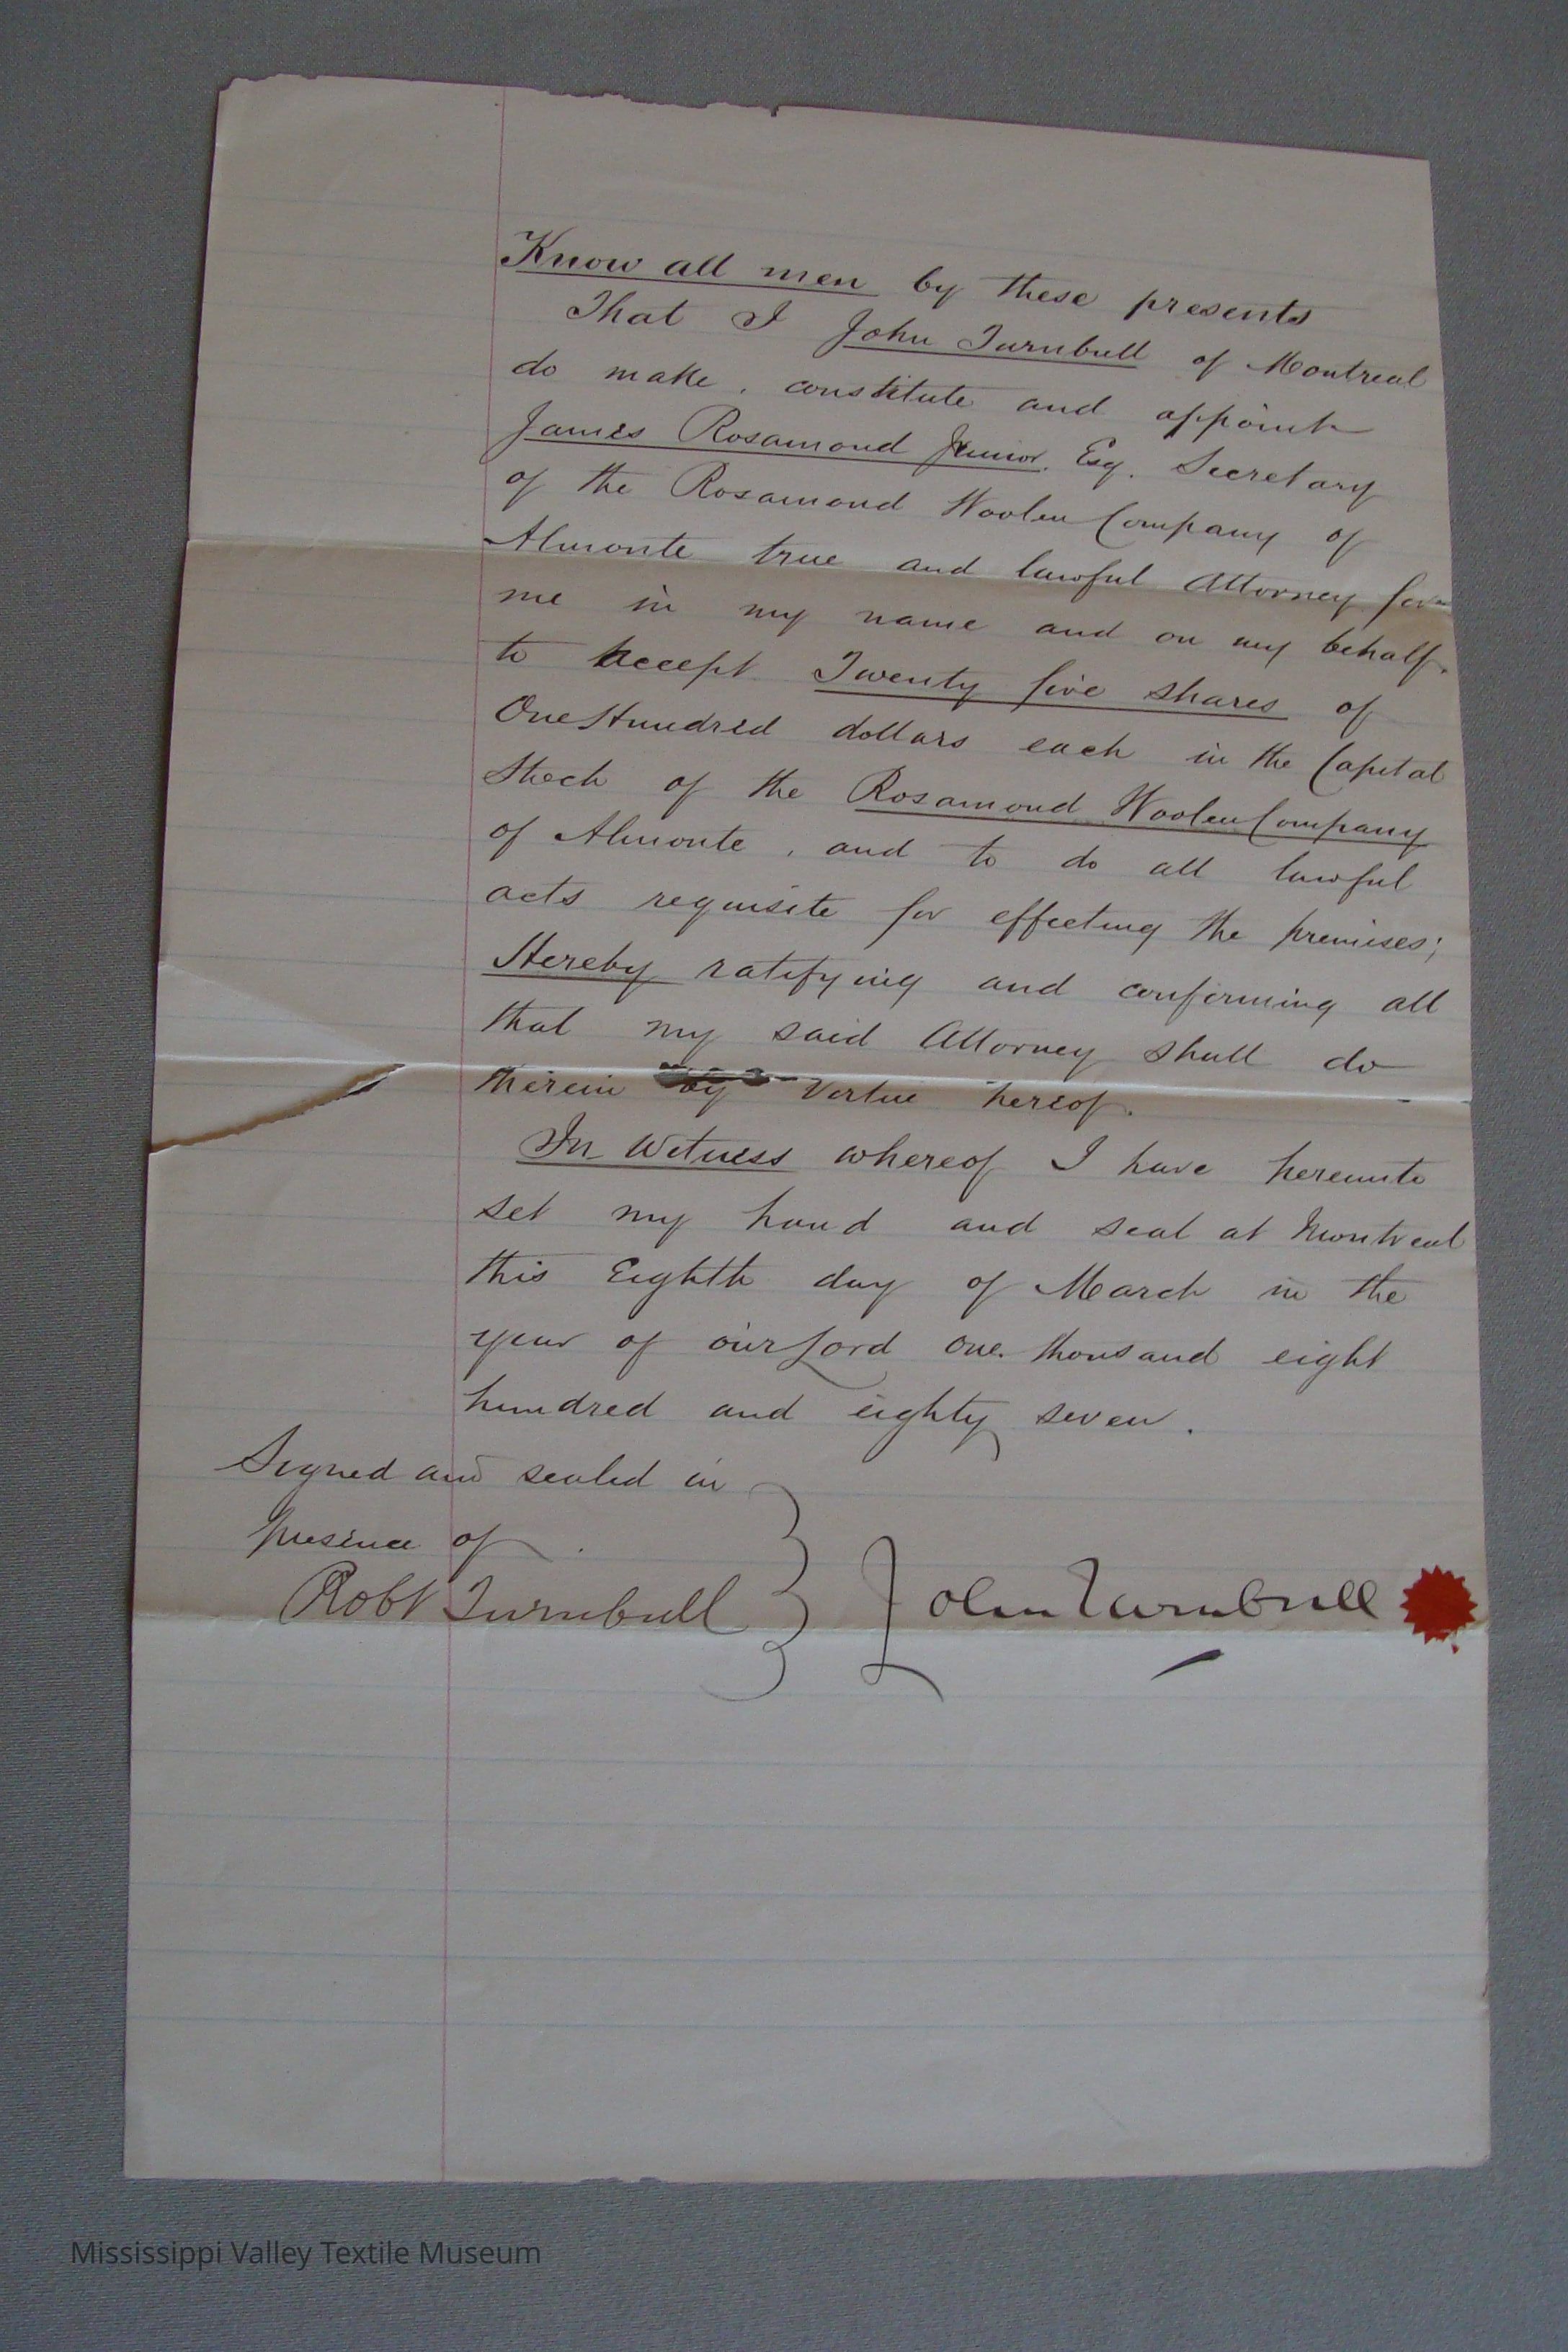 Know all men by these presents
That I John Turnbull of Montreal
do make, constitute and appoint
James Rosamond Junior. Esq. Secretary
of the Rosamond Woolen Company of
Almonte true and lawful Attorney for
me in my name and on my behalf.
to Accept Twenty five shares of
One Hundred dollars each in the Capital
Stock of the Rosamond Woolen Company
of Almonte, and to do all lawful
acts requisite for effecting the premises;
Hereby ratifying and confirming all
that my said Attorney shall do
therein by Vertue hereof.
In Witness whereof I have hereunto
set my hand and seal at Montreal
this Eighth day of March in the
year of our Lord one thousand eight
hundred and eighty seven.
Signed and sealed in
presence of.
Robt Turnbull
John Turnbull
Mississippi Valley Textile Museum